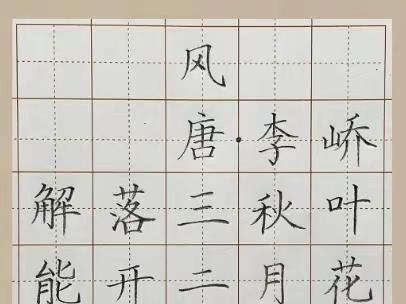 风
唐·李峤
解落三秋叶
能开二月花